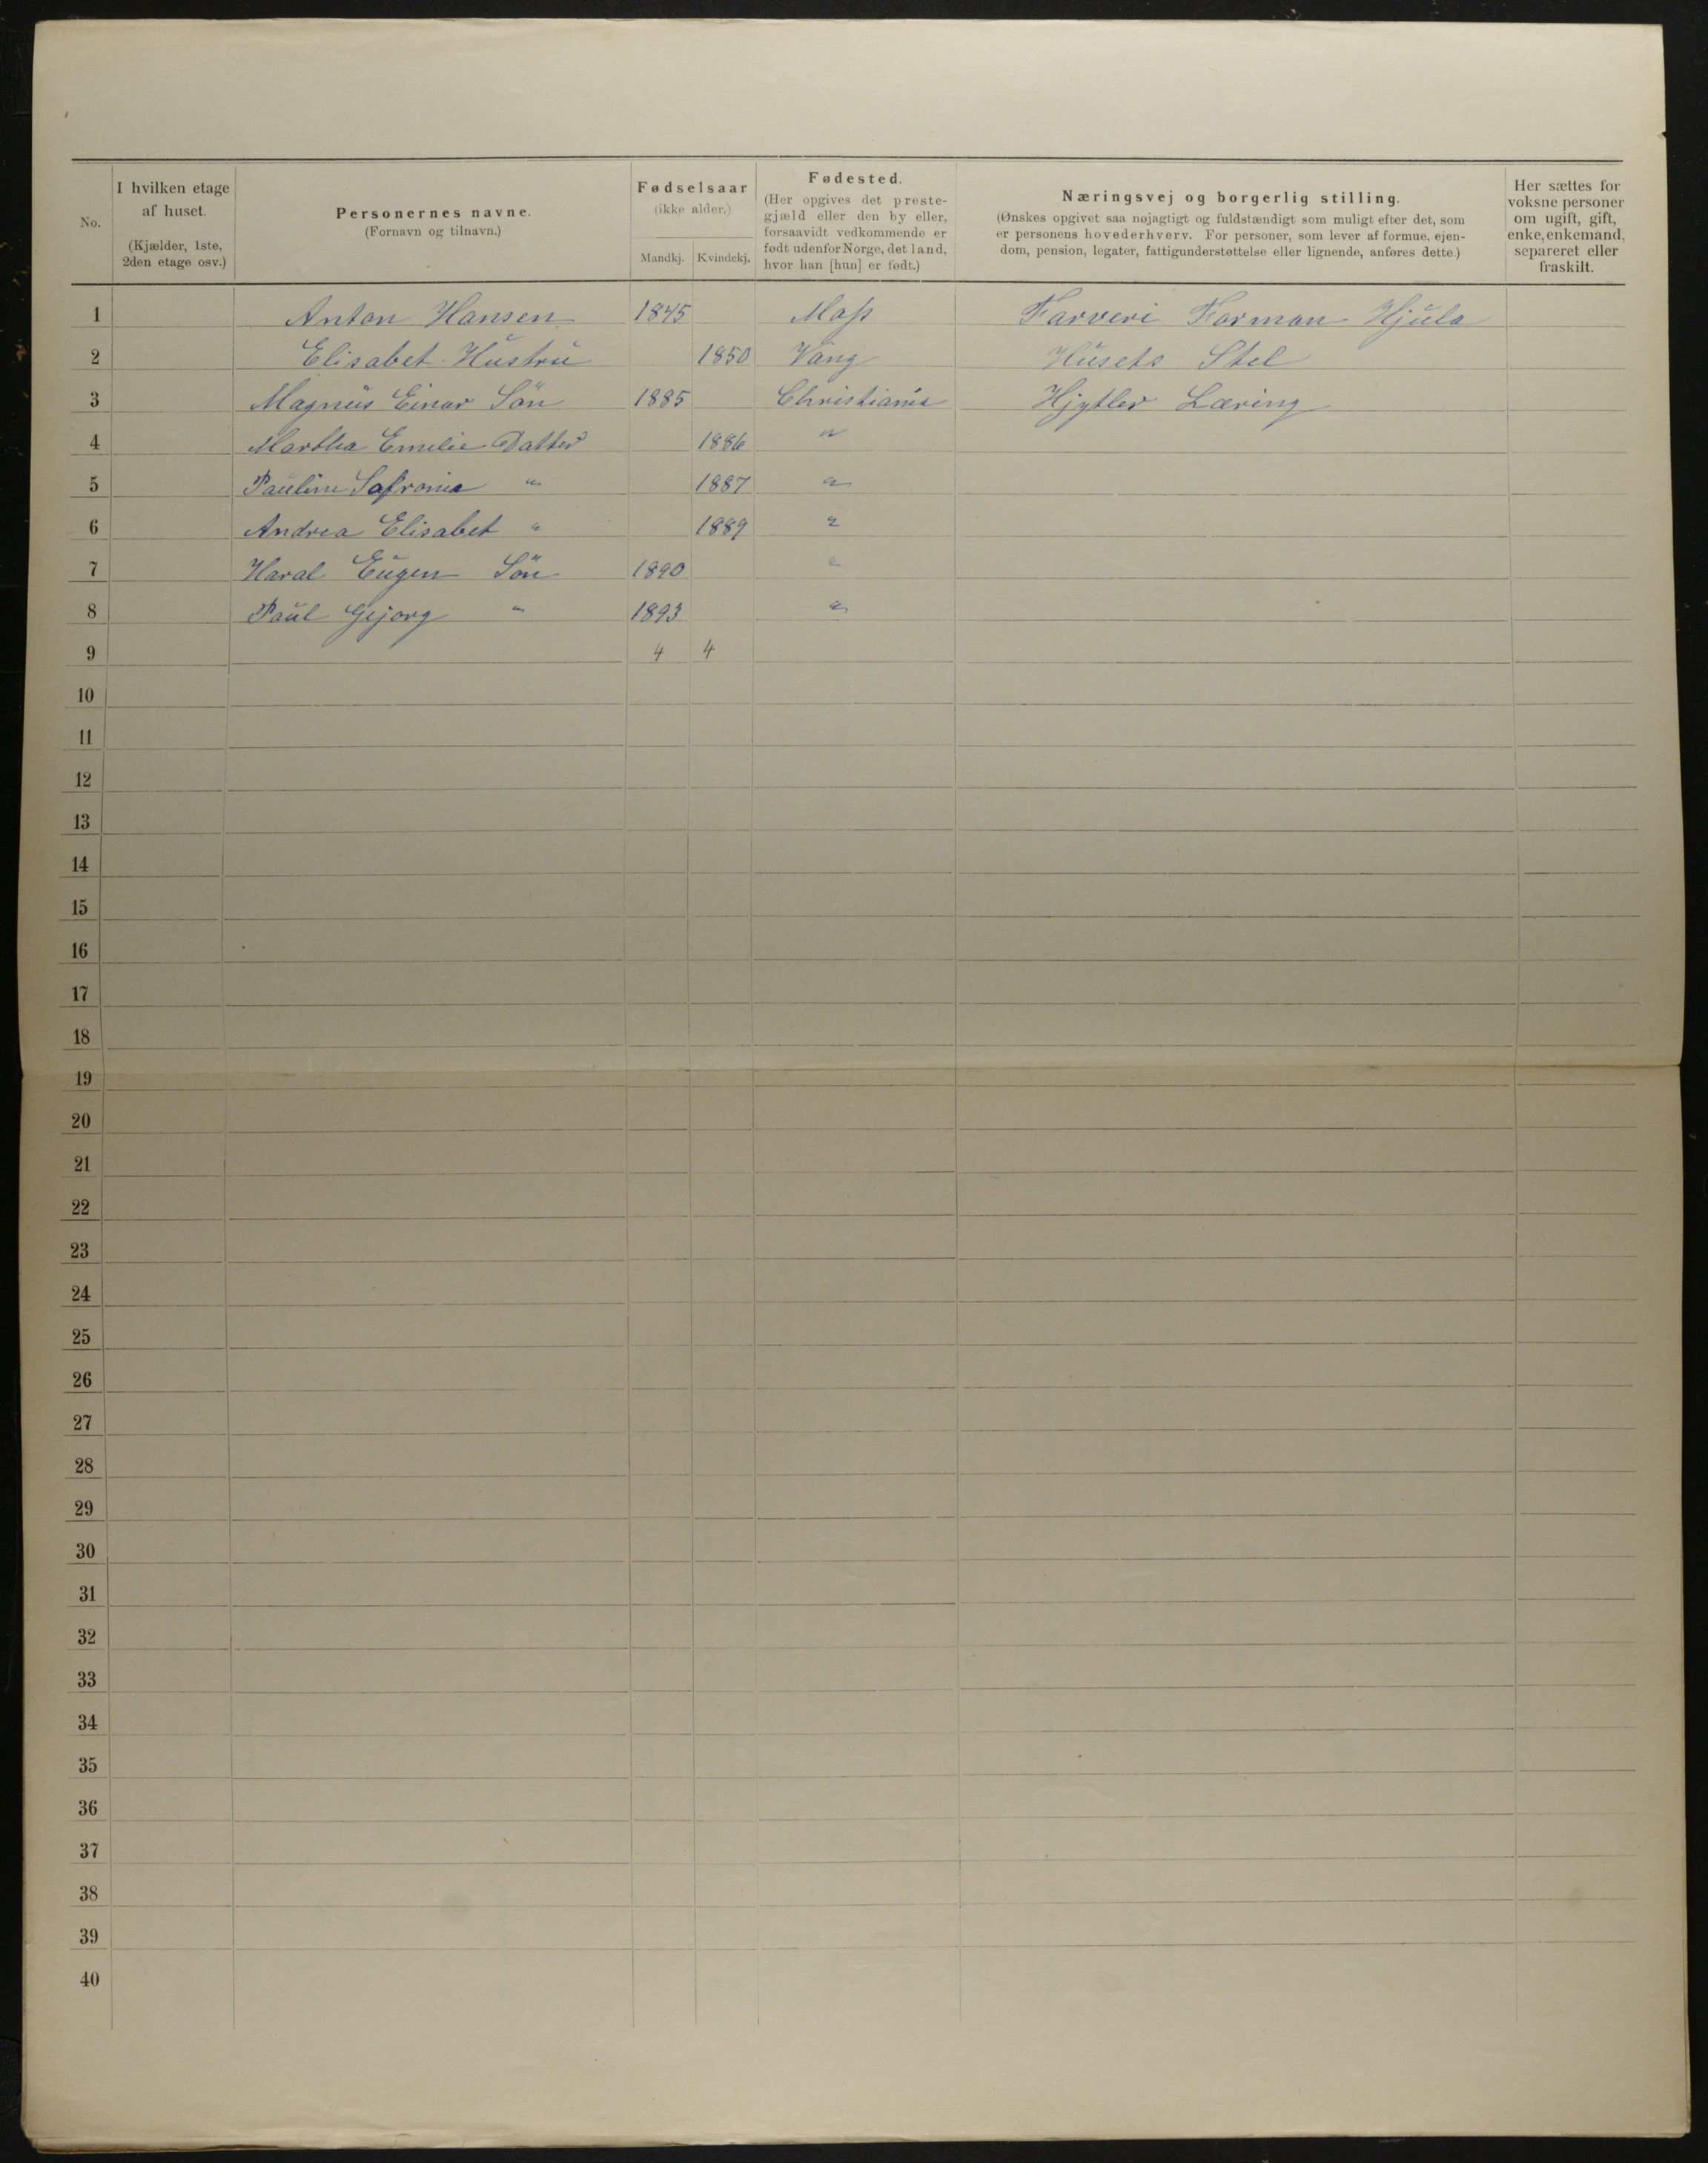 No.
I hvilken etage
af huset.
(Kjælder, 1ste,
2den etage osv.)
Personernes navne.
(Fornavn og tilnavn.)
Fødselsaar
(ikke alder.)
Mandkj. Kvindekj.
Fødested.
(Her opgives det preste-
gjæld eller den by eller,
forsaavidt vedkommende er
født udenfor Norge, det land,
hvor han [hun] er født.)
Næringsvej og borgerlig stilling.
(Ønskes opgivet saa nøjagtigt og fuldstændigt som muligt efter det, som
er personens hovederhverv. For personer, som lever af formue, ejen-
dom, pension, legater, fattigunderstøttelse eller lignende, anføres dette.)
Her sættes for
voksne personer
om ugift, gift,
enke, enkemand,
separeret eller
fraskilt.
1 Anton Hansen 1845 Moss Farveri Forman Hjula
2 Elisabet Hustru 1850 Vang Husets Stel
3 Magnus Einar Sön 1885 Christiania Hjytler Læring
4 Martha Emilie Datter 1886 "
5 Pauline Safronia " 1887 "
6 Andrea Elisabet " 1889 "
7 Haral Eugen Sön 1890 "
8 Paul Gejorg " 1893 "
9 4 4
10
11
12
13
14
15
16
17
18
19
20
21
22
23
24
25
26
27
28
29
30
31
32
33
34
35
36
37
38
39
40